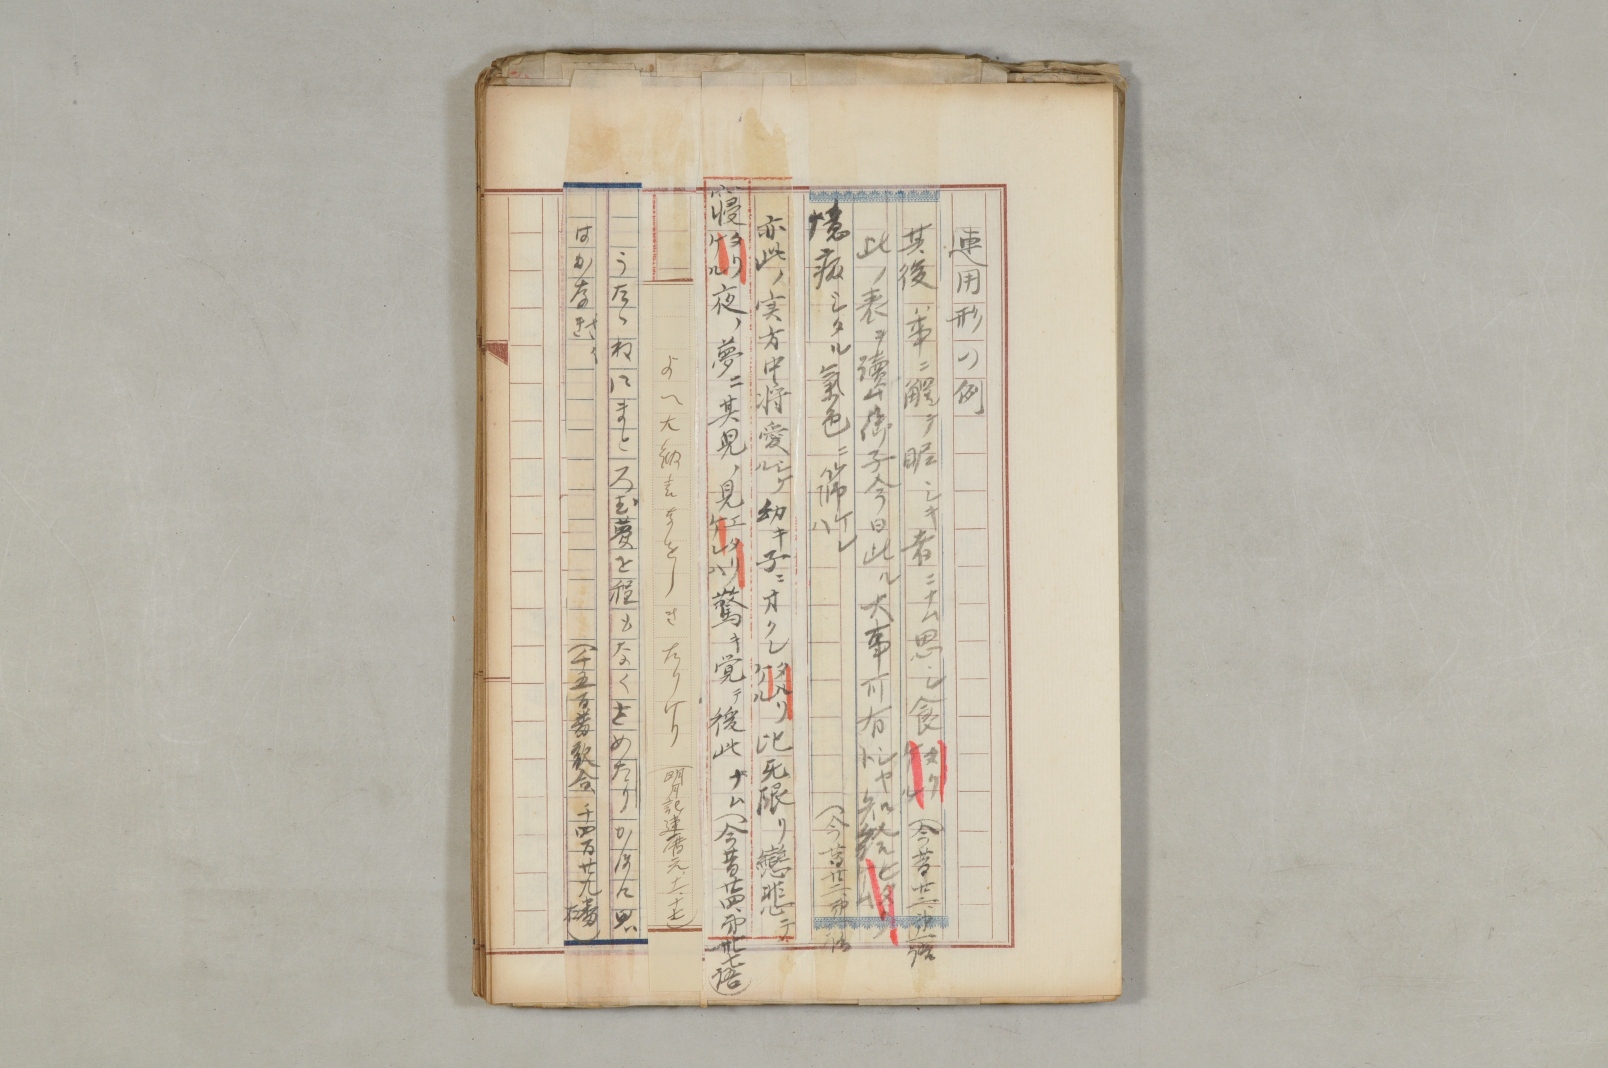 連用形の例
其後ハ事ニ觸テ昵シキ者ニナム思シ食タリケル（今昔廿二、第一語
此ノ表ヲ讀ム御子今日此ル大事可有トシヤ知給ヒタリケム
憶病シタル氣色ニ御ケレハ（今昔廿二、第一語
亦此ノ実方中将愛シケル幼キ子ニオクレタリケル比死限リ戀悲テ
寝タリケル夜ノ夢ニ其児ノ見エタリケレハ驚キ覚テ後此ナム（今昔廿四、第卅七語）
よへ大納言まをしきたりけり（明月記建暦元、十一、十七）
うたゝねにまとろむ夢を程もなくさめたりかほに思
はかなさ（千五百番歌合 千四百廿九番右）